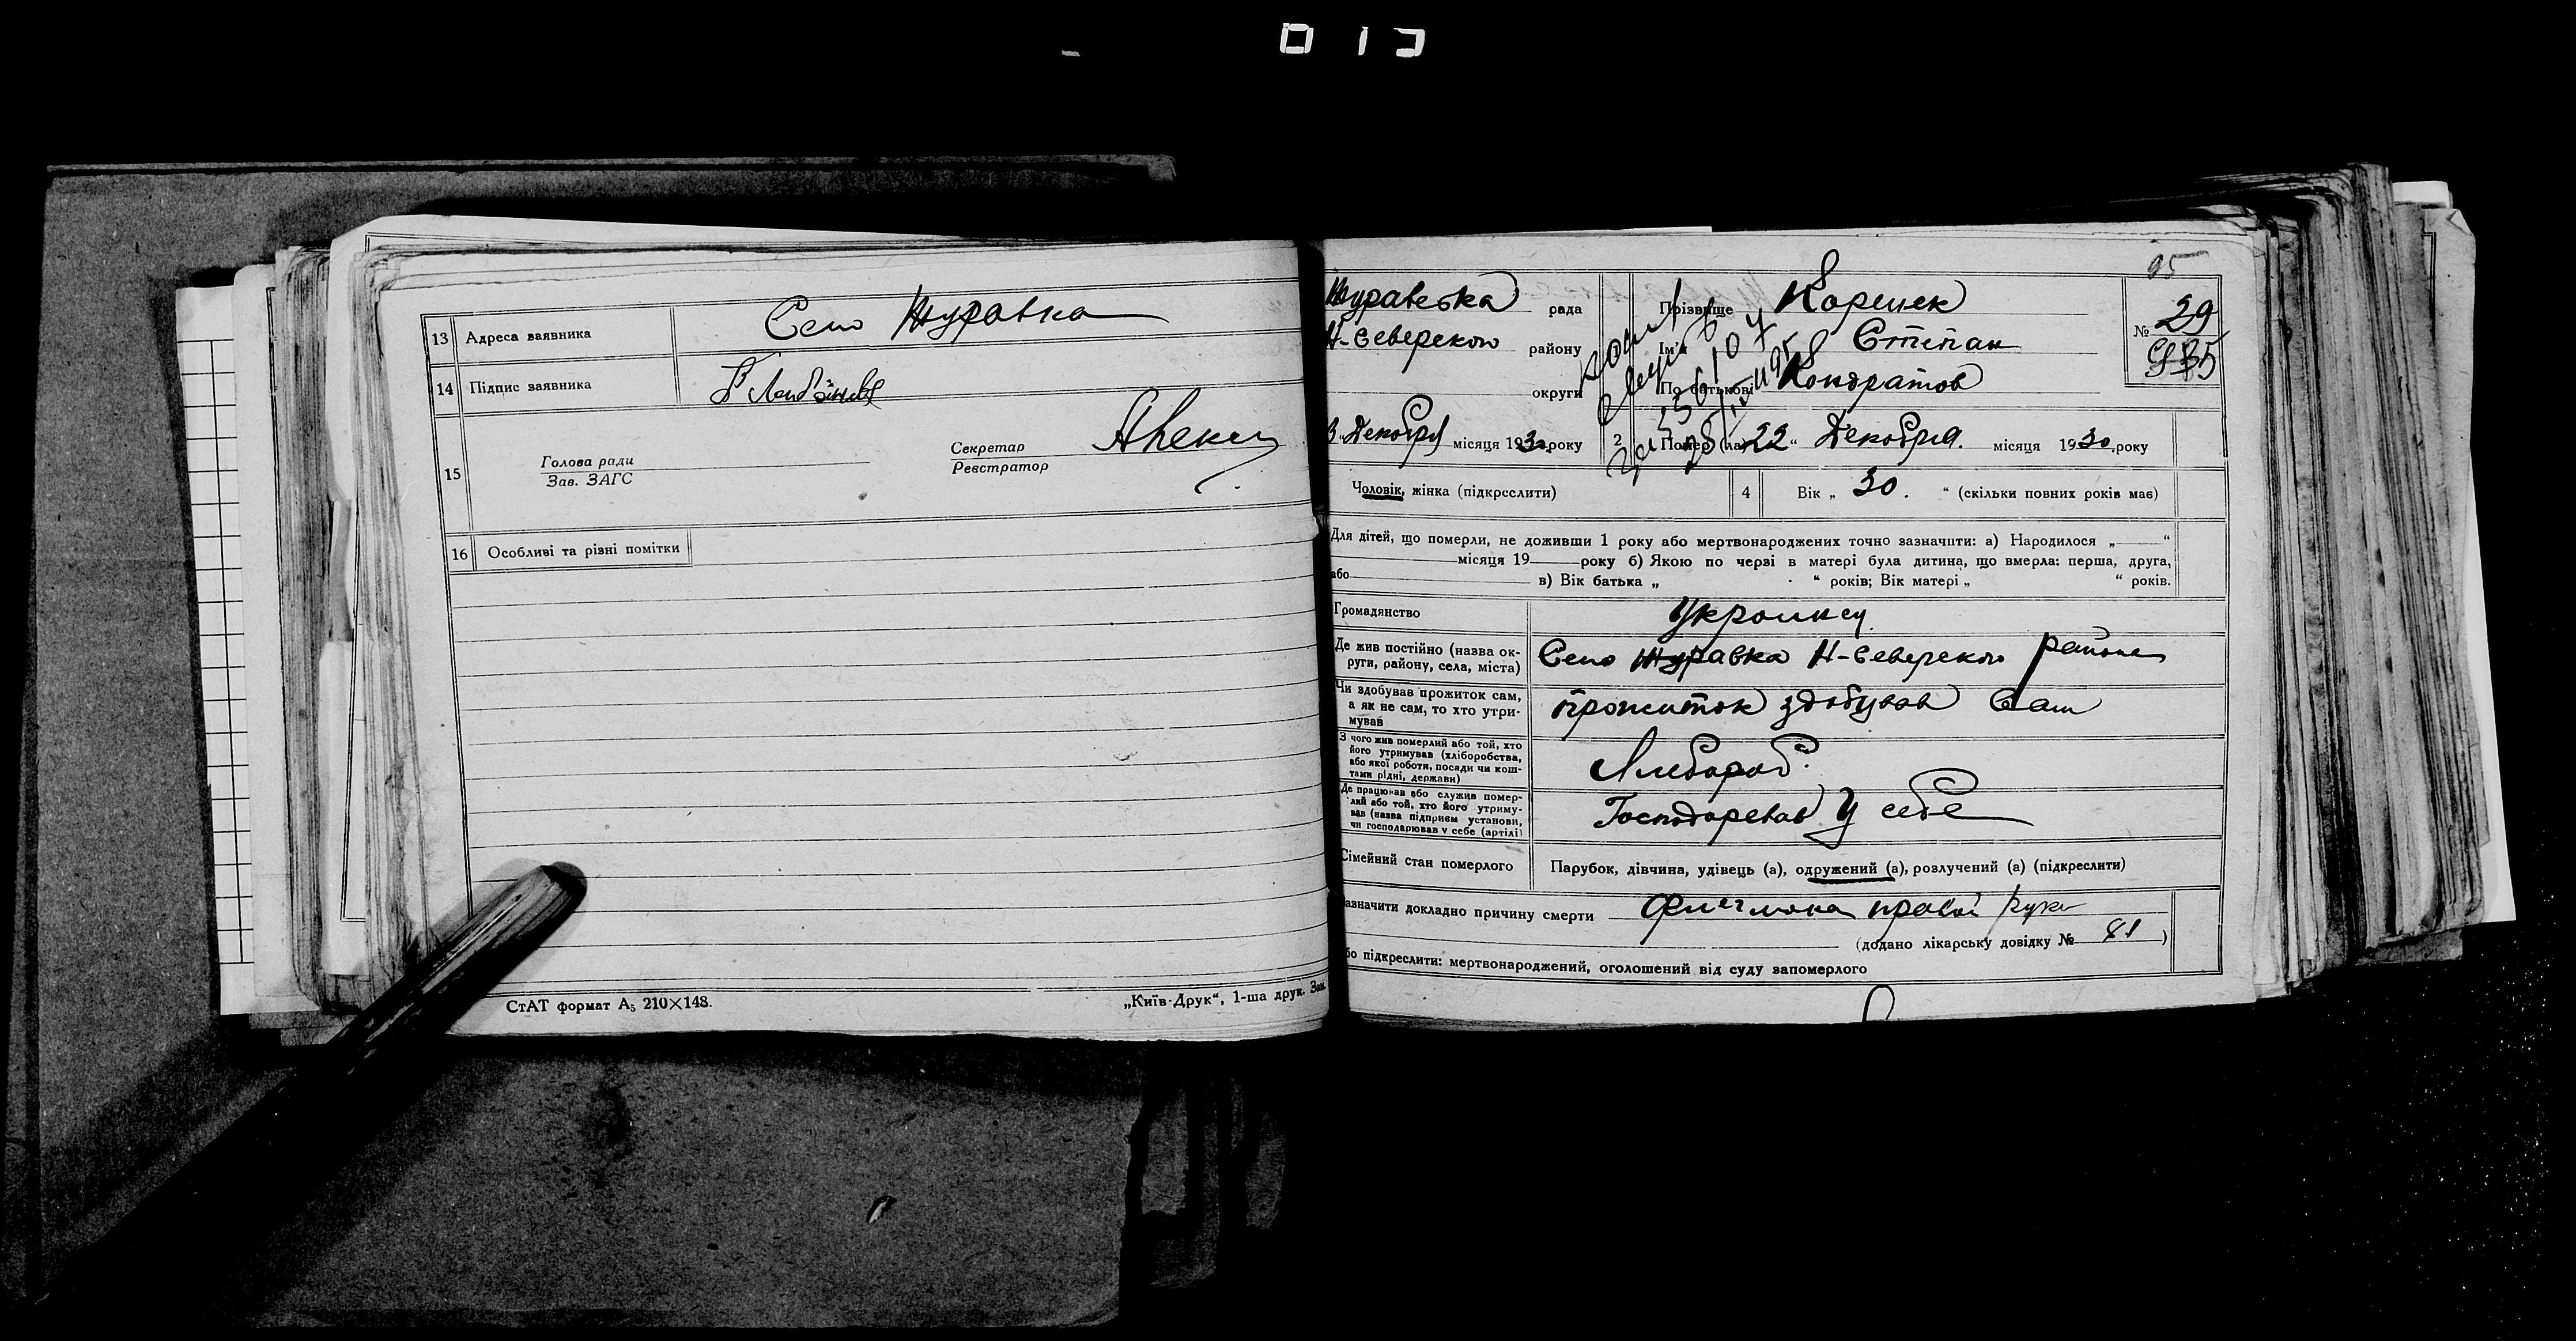 13 Адреса заявника Село Журавка
14 Підпис заявника
15 Голова ради
Зав. ЗАГС
Секретар
Реєстратор
16 Особливі та різні помітки
СтАТ формат А5 210×148.
„Київ-Друк“, 1-ша друк. Зам.
95
Журавська рада
Н-Северского району
округи
Прізвище Коршек
Ім'я Степан
По батькові Кондратов
№ 29
Декабря місяця 1930 року
2 Помер (ла) „22“ Декабря. місяця 1930 року
Чоловік, жінка (підкреслити)
4 Вік „ 30. “ (скільки повних років має)
Для дітей, що померли, не доживши 1 року або мертвонароджених точно зазначити: а) Народилося „ “
місяця 19 року б) Якою по черзі в матері була дитина, що вмерла: перша, друга,
або в) Вік батька „ “ років; Вік матері „ “ років.
Громадянство
Де жив постійно (назва ок-
руги, району, села, міста) Село Журавка Н-Северского района
Чи здобував прожиток сам,
а як не сам, то хто утри-
мував прожиток здобував Сам
З чого жив померлий або той, хто
його утримував (хліборобства,
або якої роботи, посади чи кош-
тами рідні, держави)
Де працював або служив помер-
лий або той, хто його утриму-
вав (назва підприєм установи,
чи господарював у себе (артілі) Господаревав у себе
Сімейний стан померлого Парубок, дівчина, удівець (а), одружений (а), розлучений (а) (підкреслити)
Зазначити докладно причину смерти Флегмона правой руки
(додано лікарську довідку № 81 )
або підкреслити: мертвонароджений, оголошений від суду запомерлого